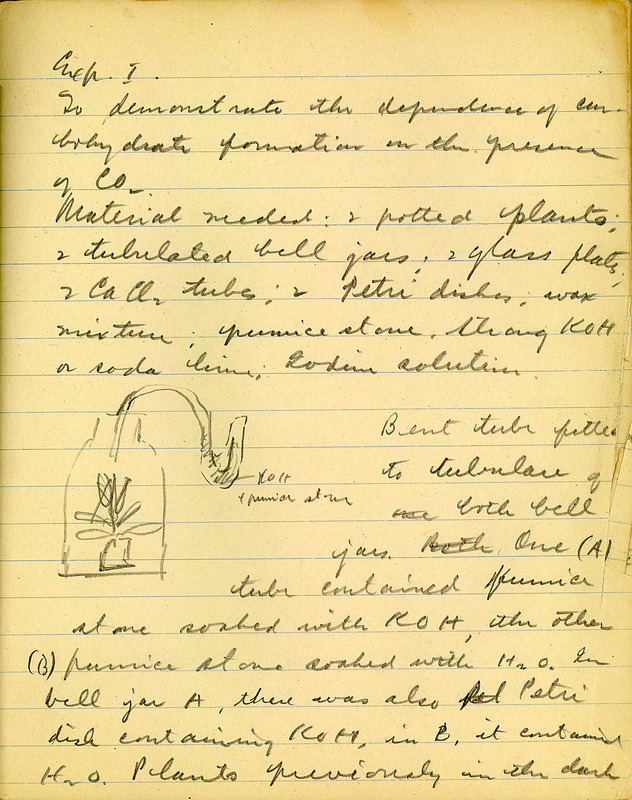 Exp. I.
To demonstrate the dependence of car-
bohydrate formation on the presence
of CO2
Material needed: 2 potted plants;
2 tubulated bell jars; 2 glass plates;
2 CaCl2 tubes; 2 Petri dishes; wax
mixture; pumice stone, strong KOH
or soda lime; Iodine solution.
KOH
+ pumice stone
Bent tube fitted
to tubulare of
one both bell
jars. Both One (A)
tube contained pumice
stone soaked with KOH, the other
(B) pumice stone soaked with H2O. In
bell jar A, there was also Petri
dish containing KOH, in B, it contained
H2O. Plants previously in the dark